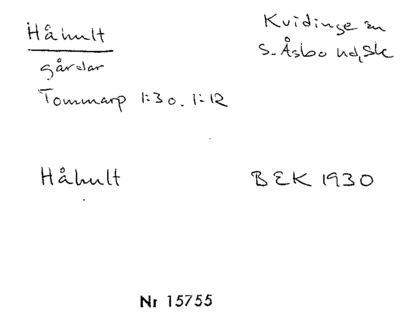 Håhult
Kvidinge sn
gårdar
S. Åsbo hd, Sk
Tommarp 1:30. 1:12
Håhult
BEK 1930
Nr 15755